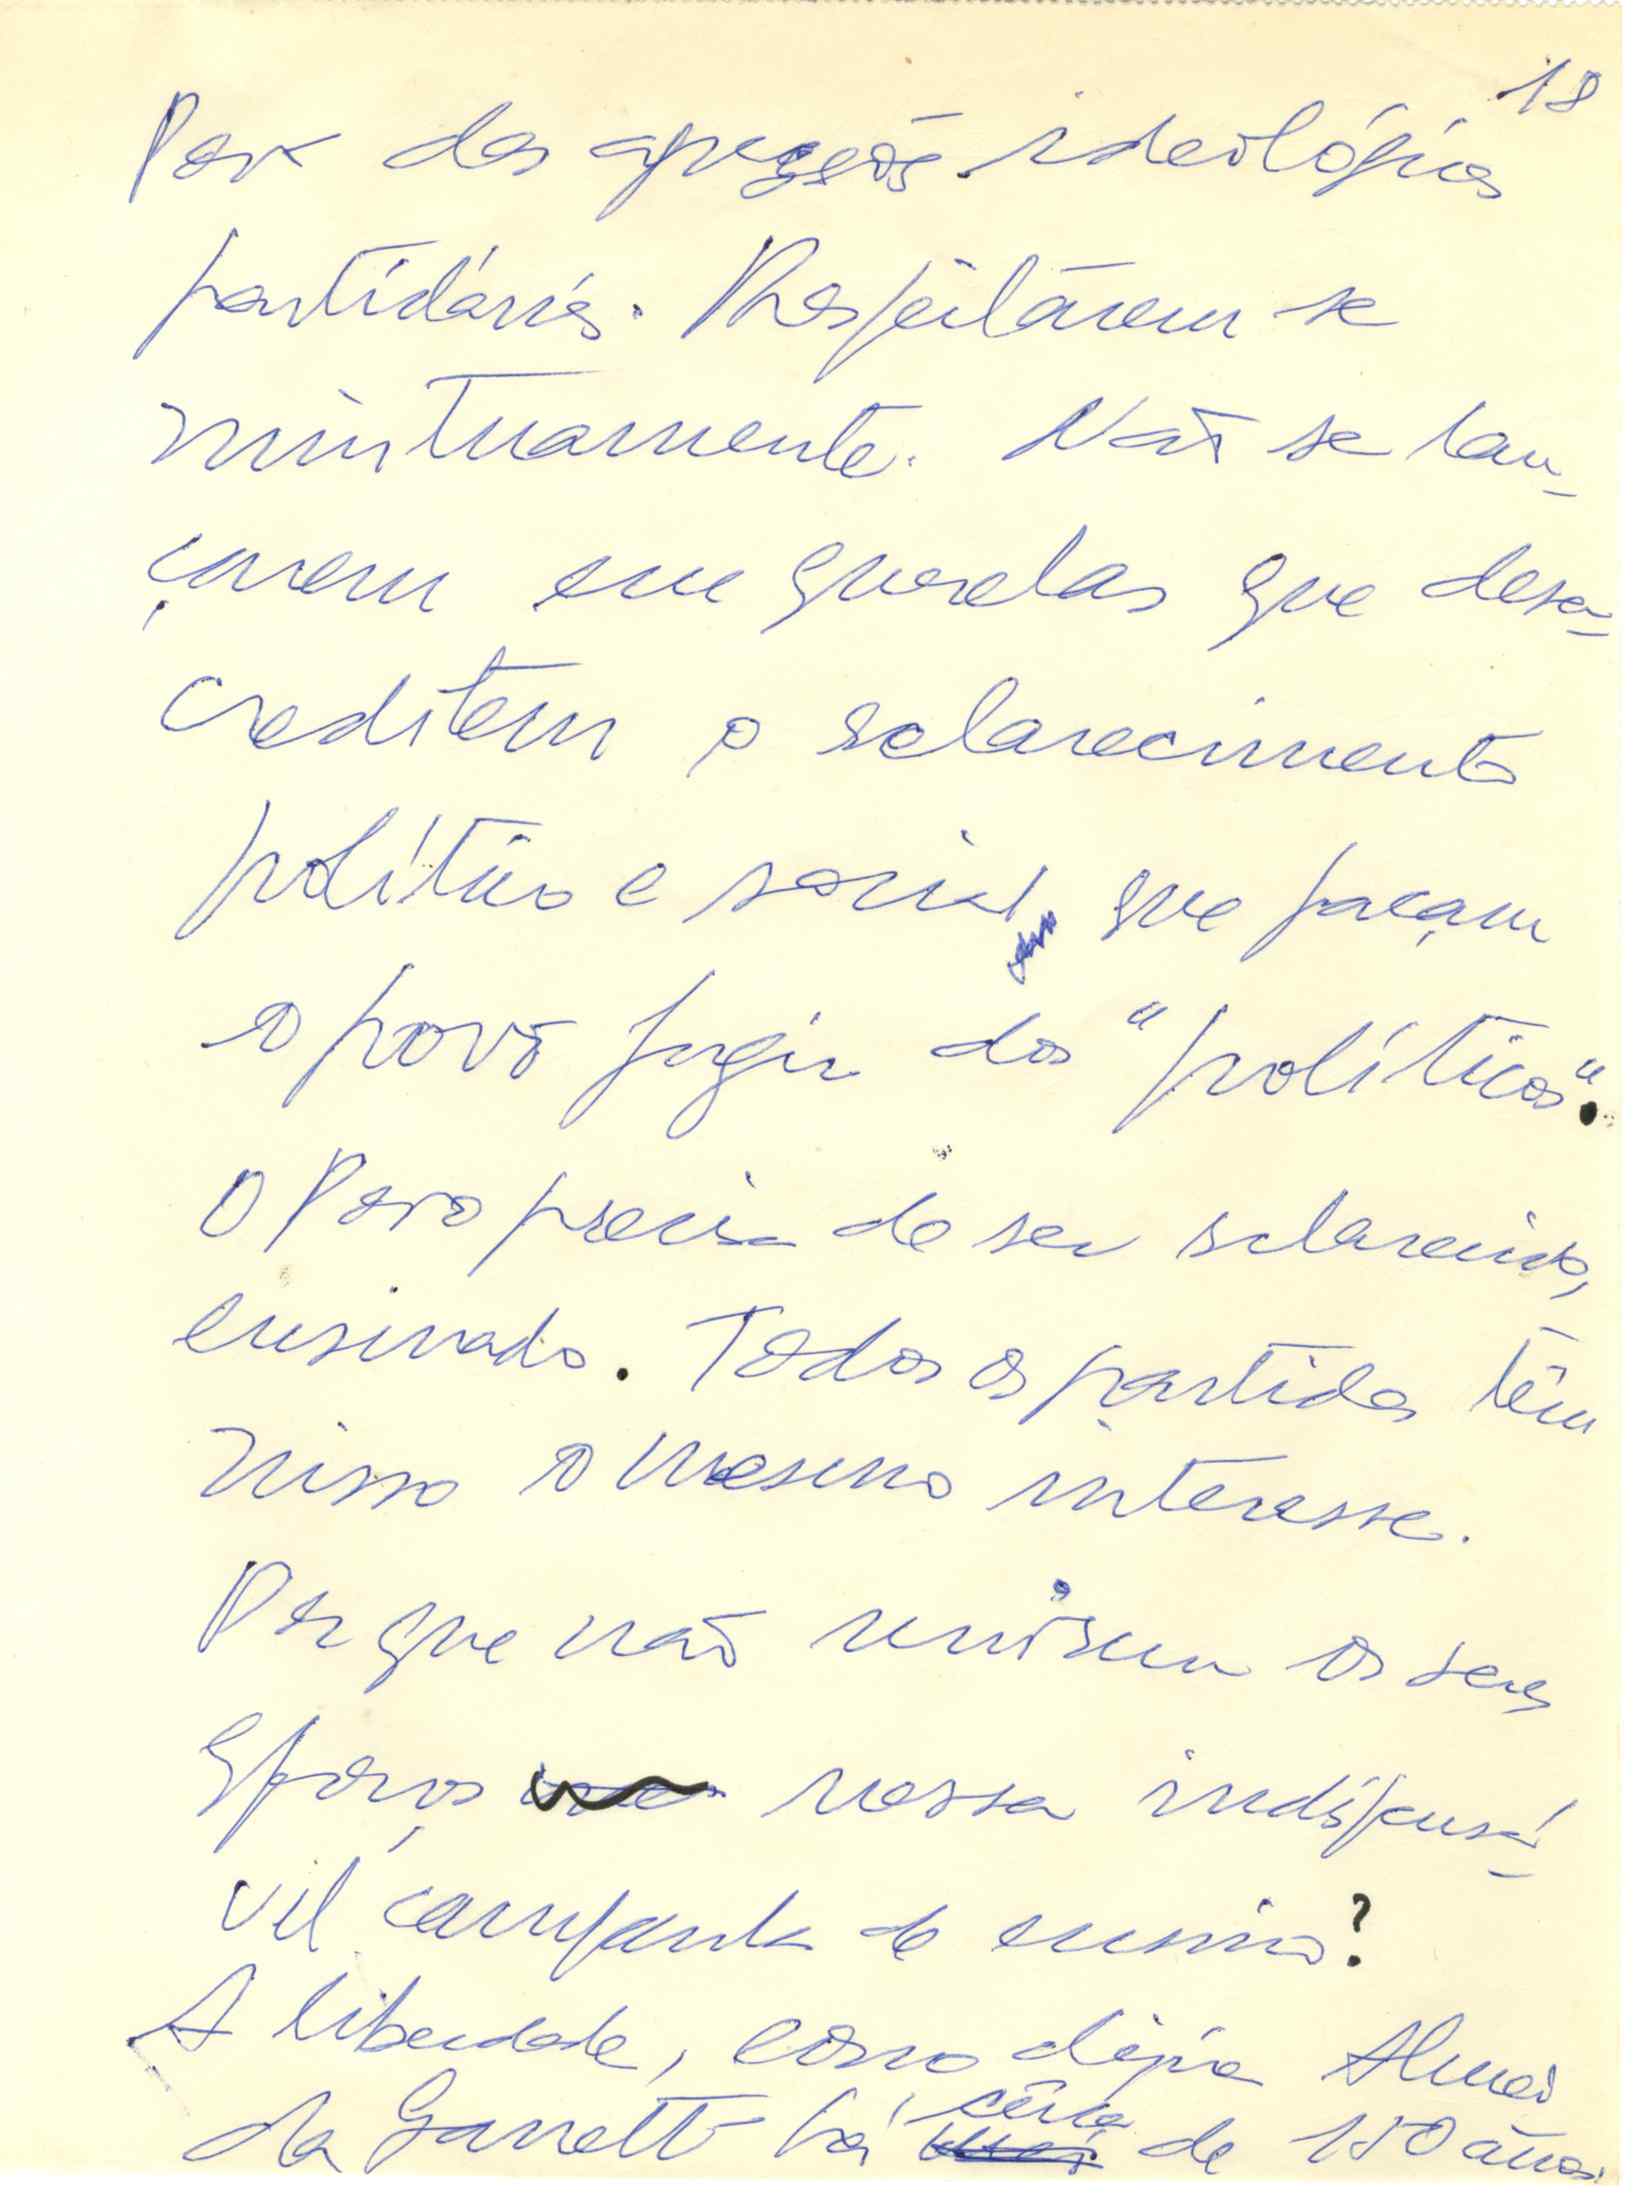 18
Povo das opções ideológicas
partidárias. Respeitárem se
mùtuamente. Não se lan-
çarem em querelas que desa-
creditem o esclarecimento
político e social, que façam
o povo fugir dos "políticos".
O Povo precisa de ser esclarecido,
ensinado. Todos os partidos têm
nisso o mesmo interesse.
Por que não unirem os seus
esforços nessa indispensá-
vel campanha de ensino?
A liberdade, como dizia Almei
da Garrett há cêrca de 150 anos